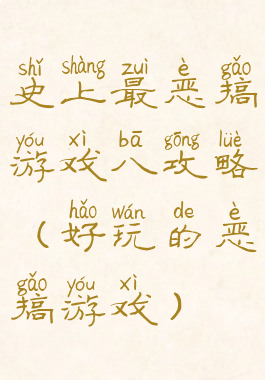 shǐ shàng zuì è gǎo
史上最恶搞
yóu xì bā gōng lüè
游戏八攻略
hǎo wán de è
（好玩的恶
gǎo yóu xì
搞游戏）